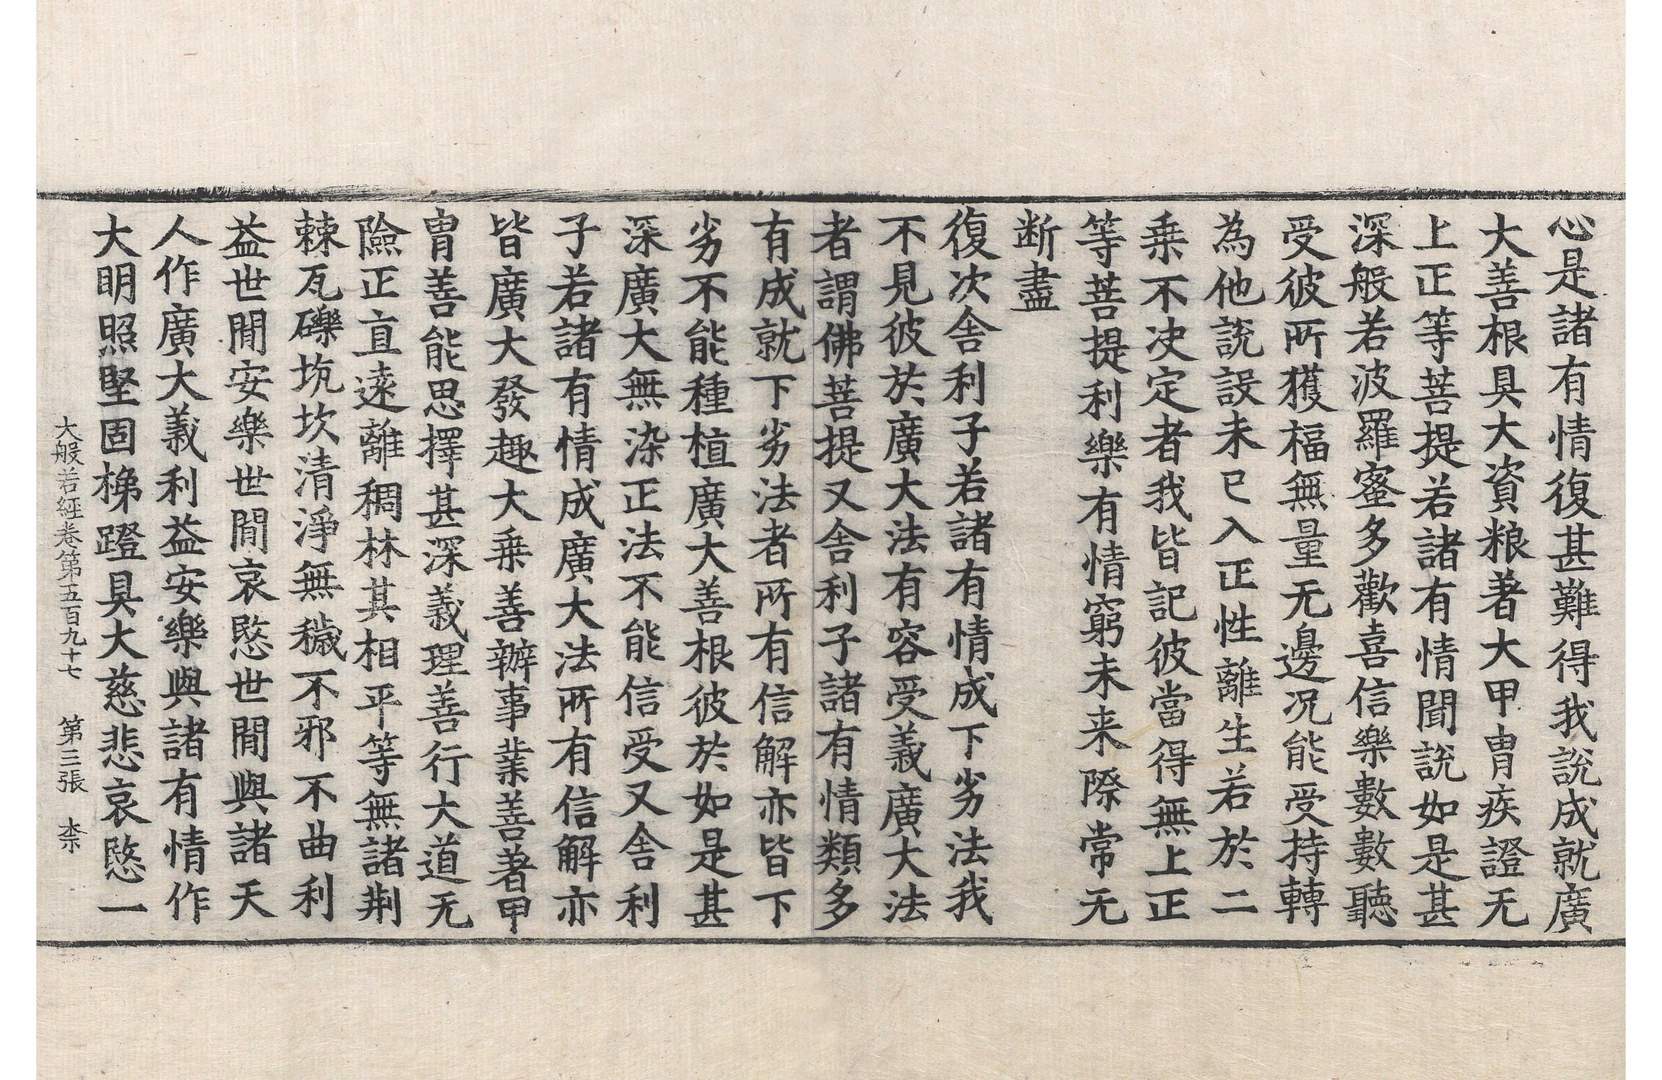 心是諸有情復甚難得我說成就廣
大善根具大資粮著大甲胄疾證无
上正等菩提若諸有情聞說如是甚
深般若波羅蜜多歡喜信樂數數聽
受彼所獲福無量无邊況能受持轉
為他說設未已入正性離生若於二
乘不决定者我皆記彼當得無上正
等菩提利樂有情窮未来際常无
断盡
復次舍利子若諸有情成下劣法我
不見彼於廣大法有容受義廣大法
者謂佛菩提又舍利子諸有情類多
有成就下劣法者所有信解亦皆下
劣不能種植廣大善根彼於如是甚
深廣大無染正法不能信受又舍利
子若諸有情成廣大法所有信解亦
皆廣大發趣大乘善辦事業善著甲
胄善能思擇甚深義理善行大道无
險正直遠離稠林其相平等無諸荆
棘瓦礫坑坎清淨無穢不邪不曲利
益世閒安樂世閒哀愍世閒與諸天
人作廣大義利益安樂與諸有情作
大明照堅固梯蹬具大慈悲哀愍一
大般若經卷第五百九十七　第三張　柰